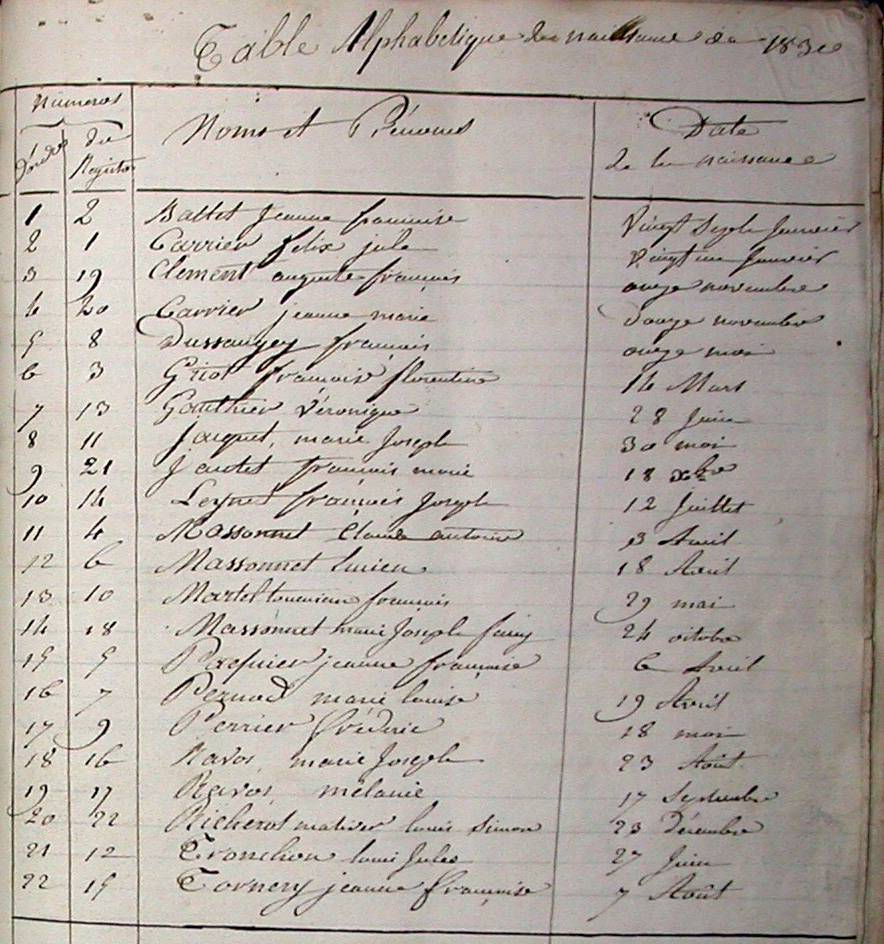 Table Alphabetique des naissance de 1830
Numeros
d'ordre du Registre Noms et Prénoms Date de la naissance
1 2 Battet Jeanne francoise Vingt Sept Janvier
2 1 Carrier felix jule Vingt un Janvier
3 19 Clement auguste françois onze novembre
4 20 Carrier jeanne marie douze novembre
5 8 Dussaugey francois onze mai
6 3 Griot francoise florentine 14 Mars
7 13 Gauthier Véronique 28 Juin
8 11 Jacquet, marie Joseph 30 mai
9 21 Jautet francois marie 18 xbre
10 14 Leynet françois Joseph 12 Juillet
11 4 Massonnet Claude antoine 3 Avril
12 6 Massonnet lucien 18 Avril
13 10 Martel francois 29 mai
14 18 Massonnet marie Joseph fany 24 octobre
15 5 jeanne françoise 6 Avril
16 7 Pernod marie louise 19 Avril
17 9 Perrier fréderic 18 mai
18 16 Navos, marie Joseph 23 Août
19 17 Navos, mélanie 17 Septembre
20 22 Richerot louis Simon 23 Décembre
21 12 Tronchon loui Jules 27 Juin
22 15 Tornery jeanne françoise 7 Août